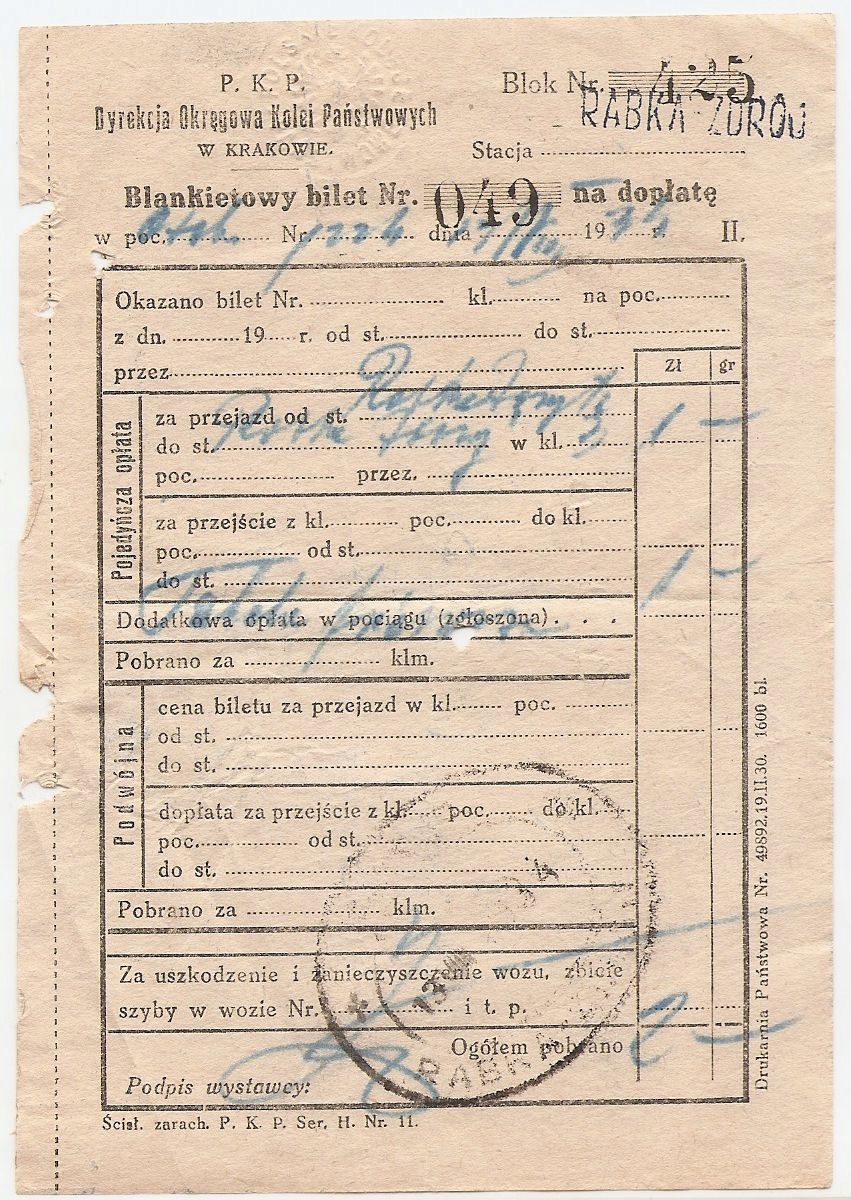 P. K. P.
Dyrekcja Okręgowa Kolei Państwowych
W KRAKOWIE.
Blok Nr. 425
RABKA-ZDRÓJ
Stacja
Blankietowy bilet Nr. 049 na dopłatę
w poc. Nr. dnia 1934 r. II.
Okazano bilet Nr. kl. na poc.
z dn. 19 r. od st. do st.
przez
Zł gr
Pojedyńcza opłata
za przejazd od st.
do st. w kl. 3 1 —
poc. przez.
za przejście z kl. poc. do kl.
poc. od st.
do st. 1 —
Dodatkowa opłata w pociągu (zgłoszona) . . .
Pobrano za klm.
Podwójna
cena biletu za przejazd w kl. poc.
od st.
do st.
dopłata za przejście z kl. poc. do kl.
poc. od st.
do st.
Pobrano za klm.
Za uszkodzenie i zanieczyszczenie wozu, zbicie
szyby w wozie Nr. i t. p.
Ogółem pobrano 2 —
Podpis wystawcy:
13 VIII 1934
RABKA
Ścisł. zarach. P. K. P. Ser. H. Nr. 11.
Drukarnia Państwowa Nr. 49892.19.II.30. 1600 bl.